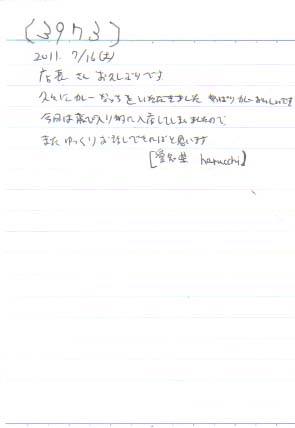 〔3973〕
2011. 7/16(土)
店長さん お久しぶりです
久々にカレーなっちをいただきました やはりカレーおいしいです
今日は飛び入り的に入店してしまいましたので
またゆっくりお話しできればと思います
[愛知堂 harucchi]